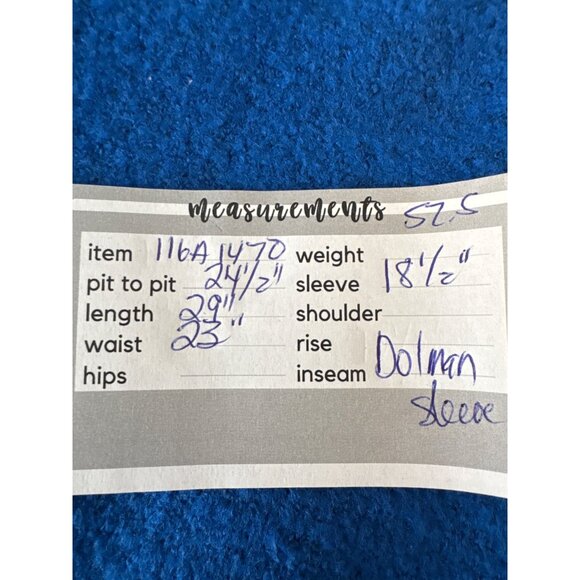 measurements SZ.S
item 116A1470 weight
pit to pit 24 1/2" sleeve 18 1/2"
length 29" shoulder
waist 23" rise
hips inseam Dolman
sleeve